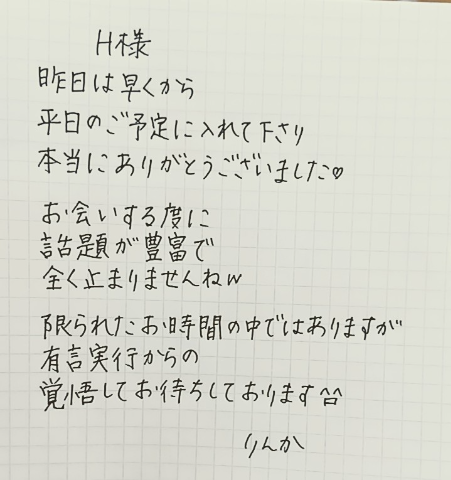 H様
昨日は早くから
平日のご予定に入れて下さり
本当にありがとうございました♡
お会いする度に
話題が豊富で
全く止まりませんねw
限られたお時間の中ではありますが
有言実行からの
覚悟してお待ちしております^^
りんか